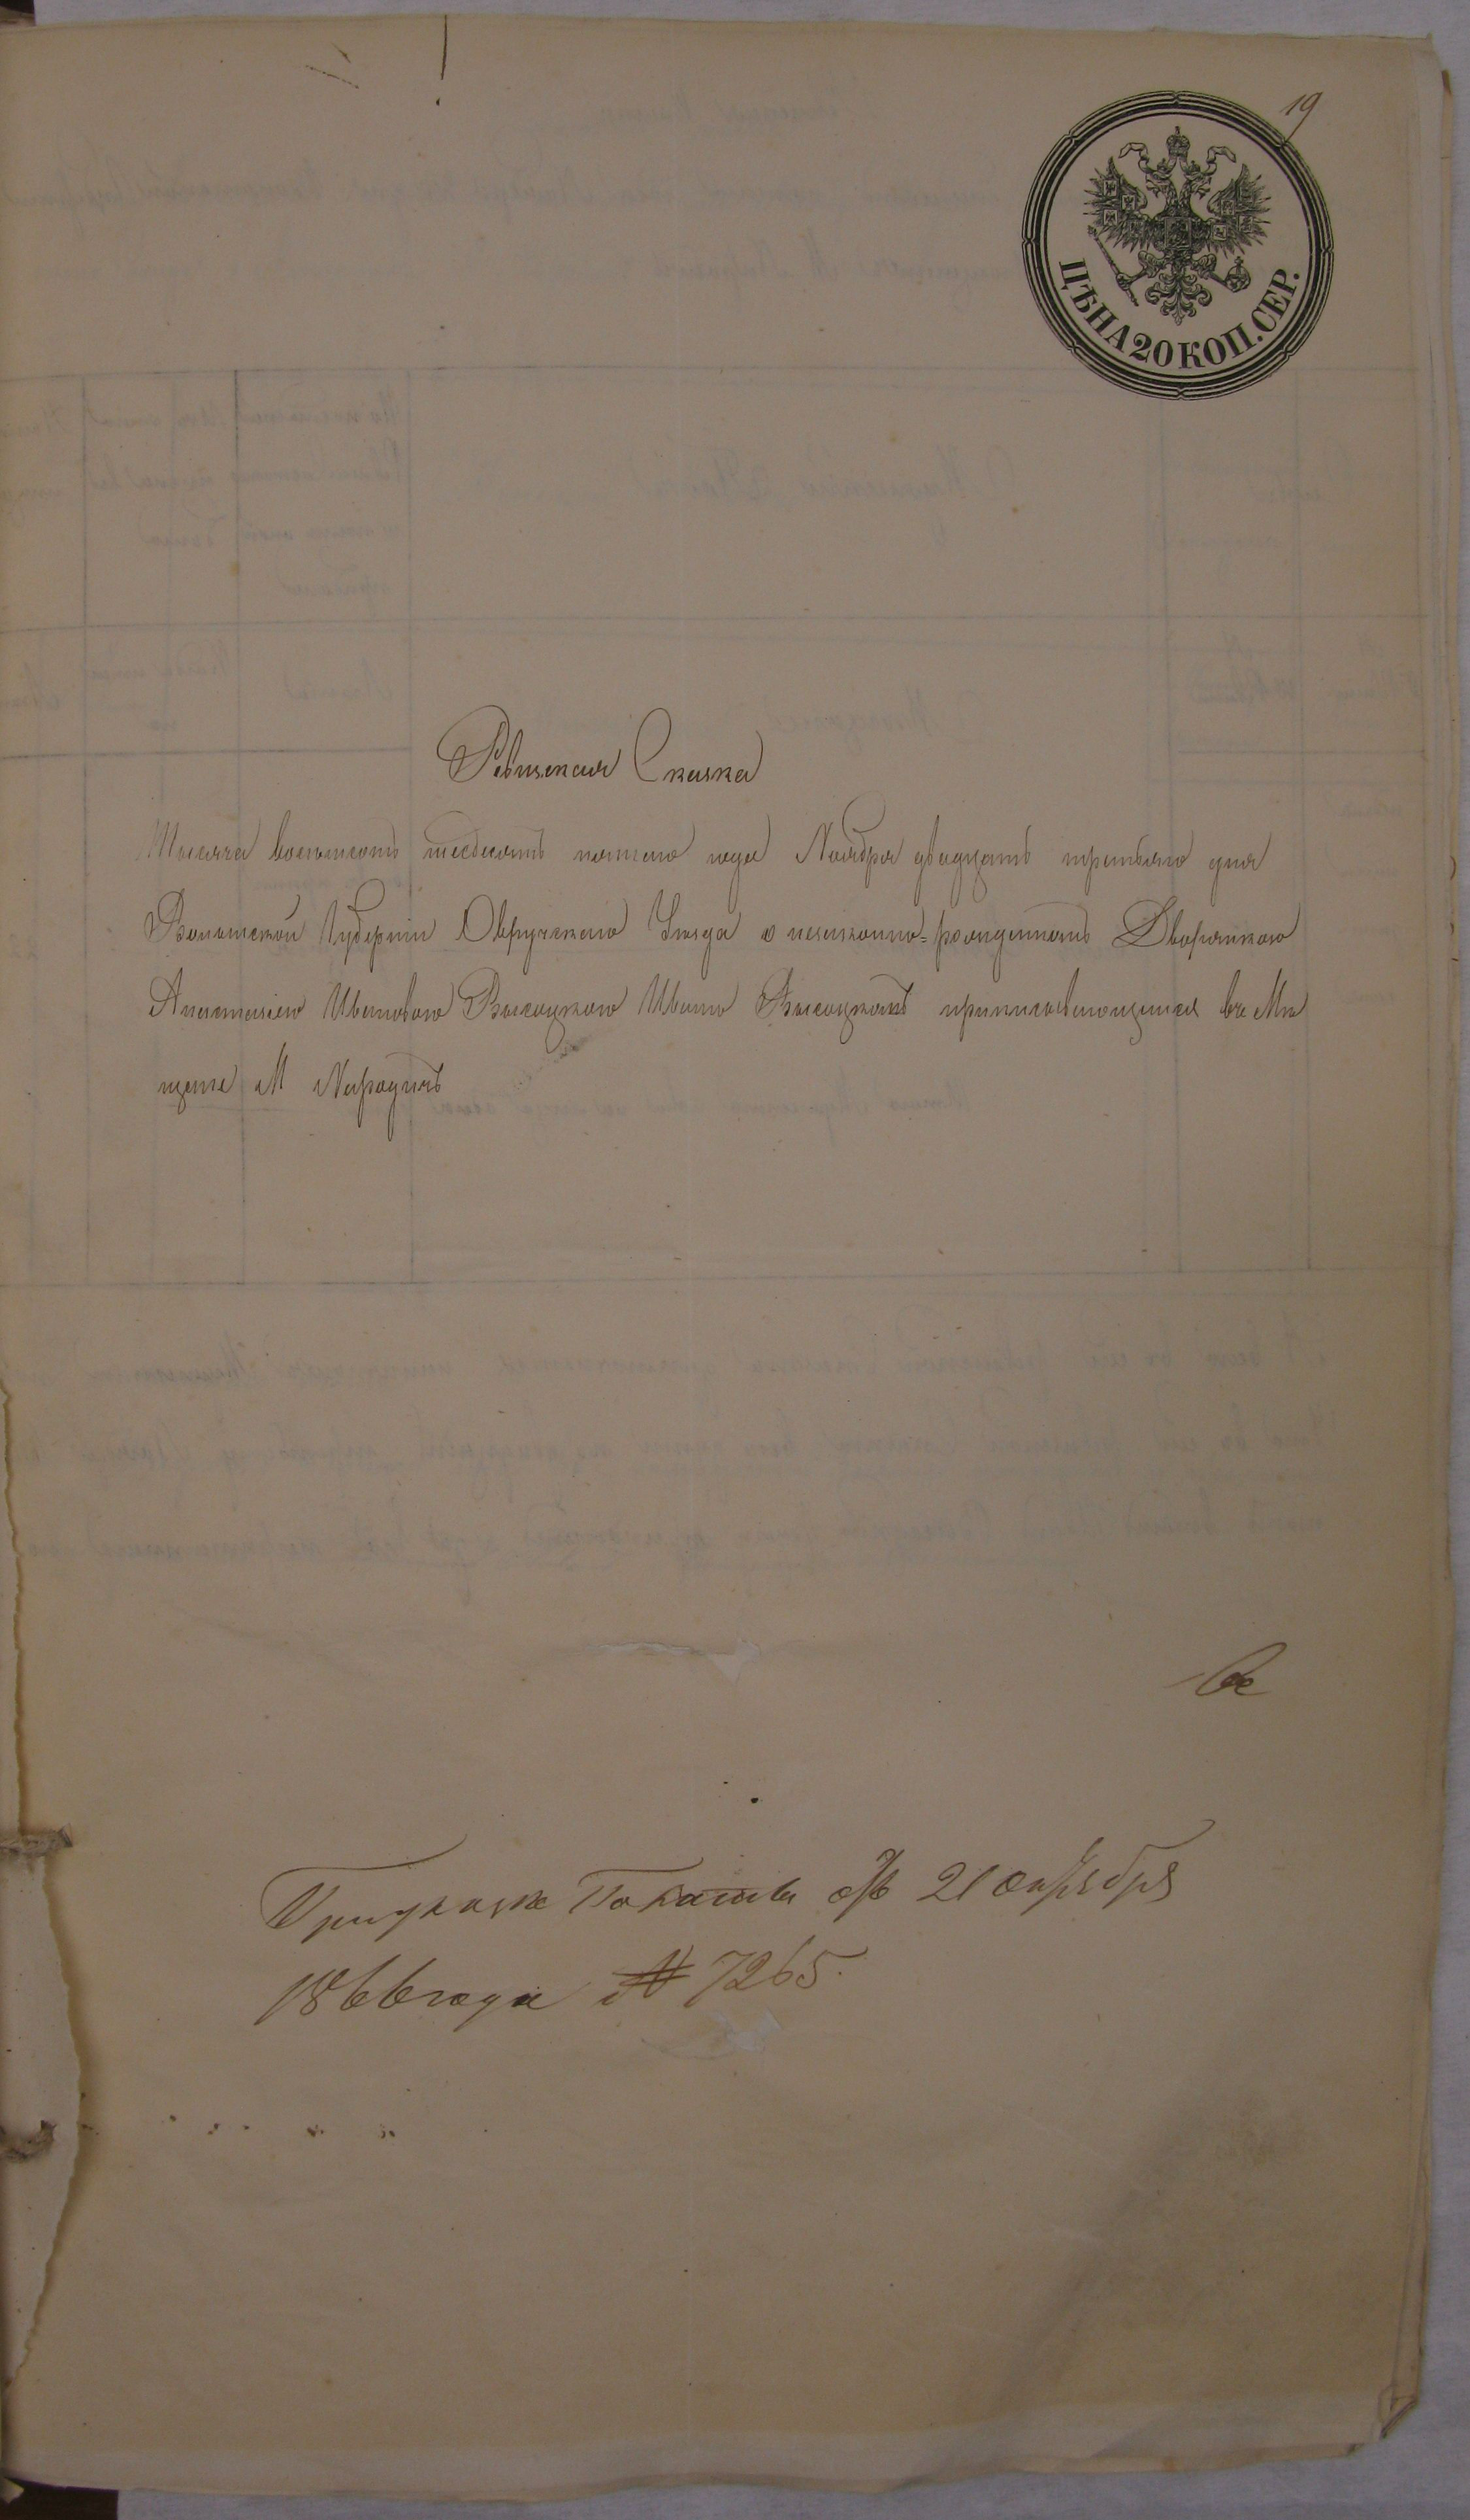 19
ЦѢНА 20 КОП. СЕР.
Ревизская Сказка
Тысяча восемьсотъ шестьдесятъ пятого года Ноября двадцать третьяго дня
Волынской Губерніи Овручскаго Уѣзда о незаконно-рожденномъ Дворянкою
Анастасіею Ивановою Высоцкою Иванѣ Высоцкомъ приписывающимся въ Мѣ
щане М Народичъ
При указѣ Палаты отъ 21 октября
1866 года № 7265.